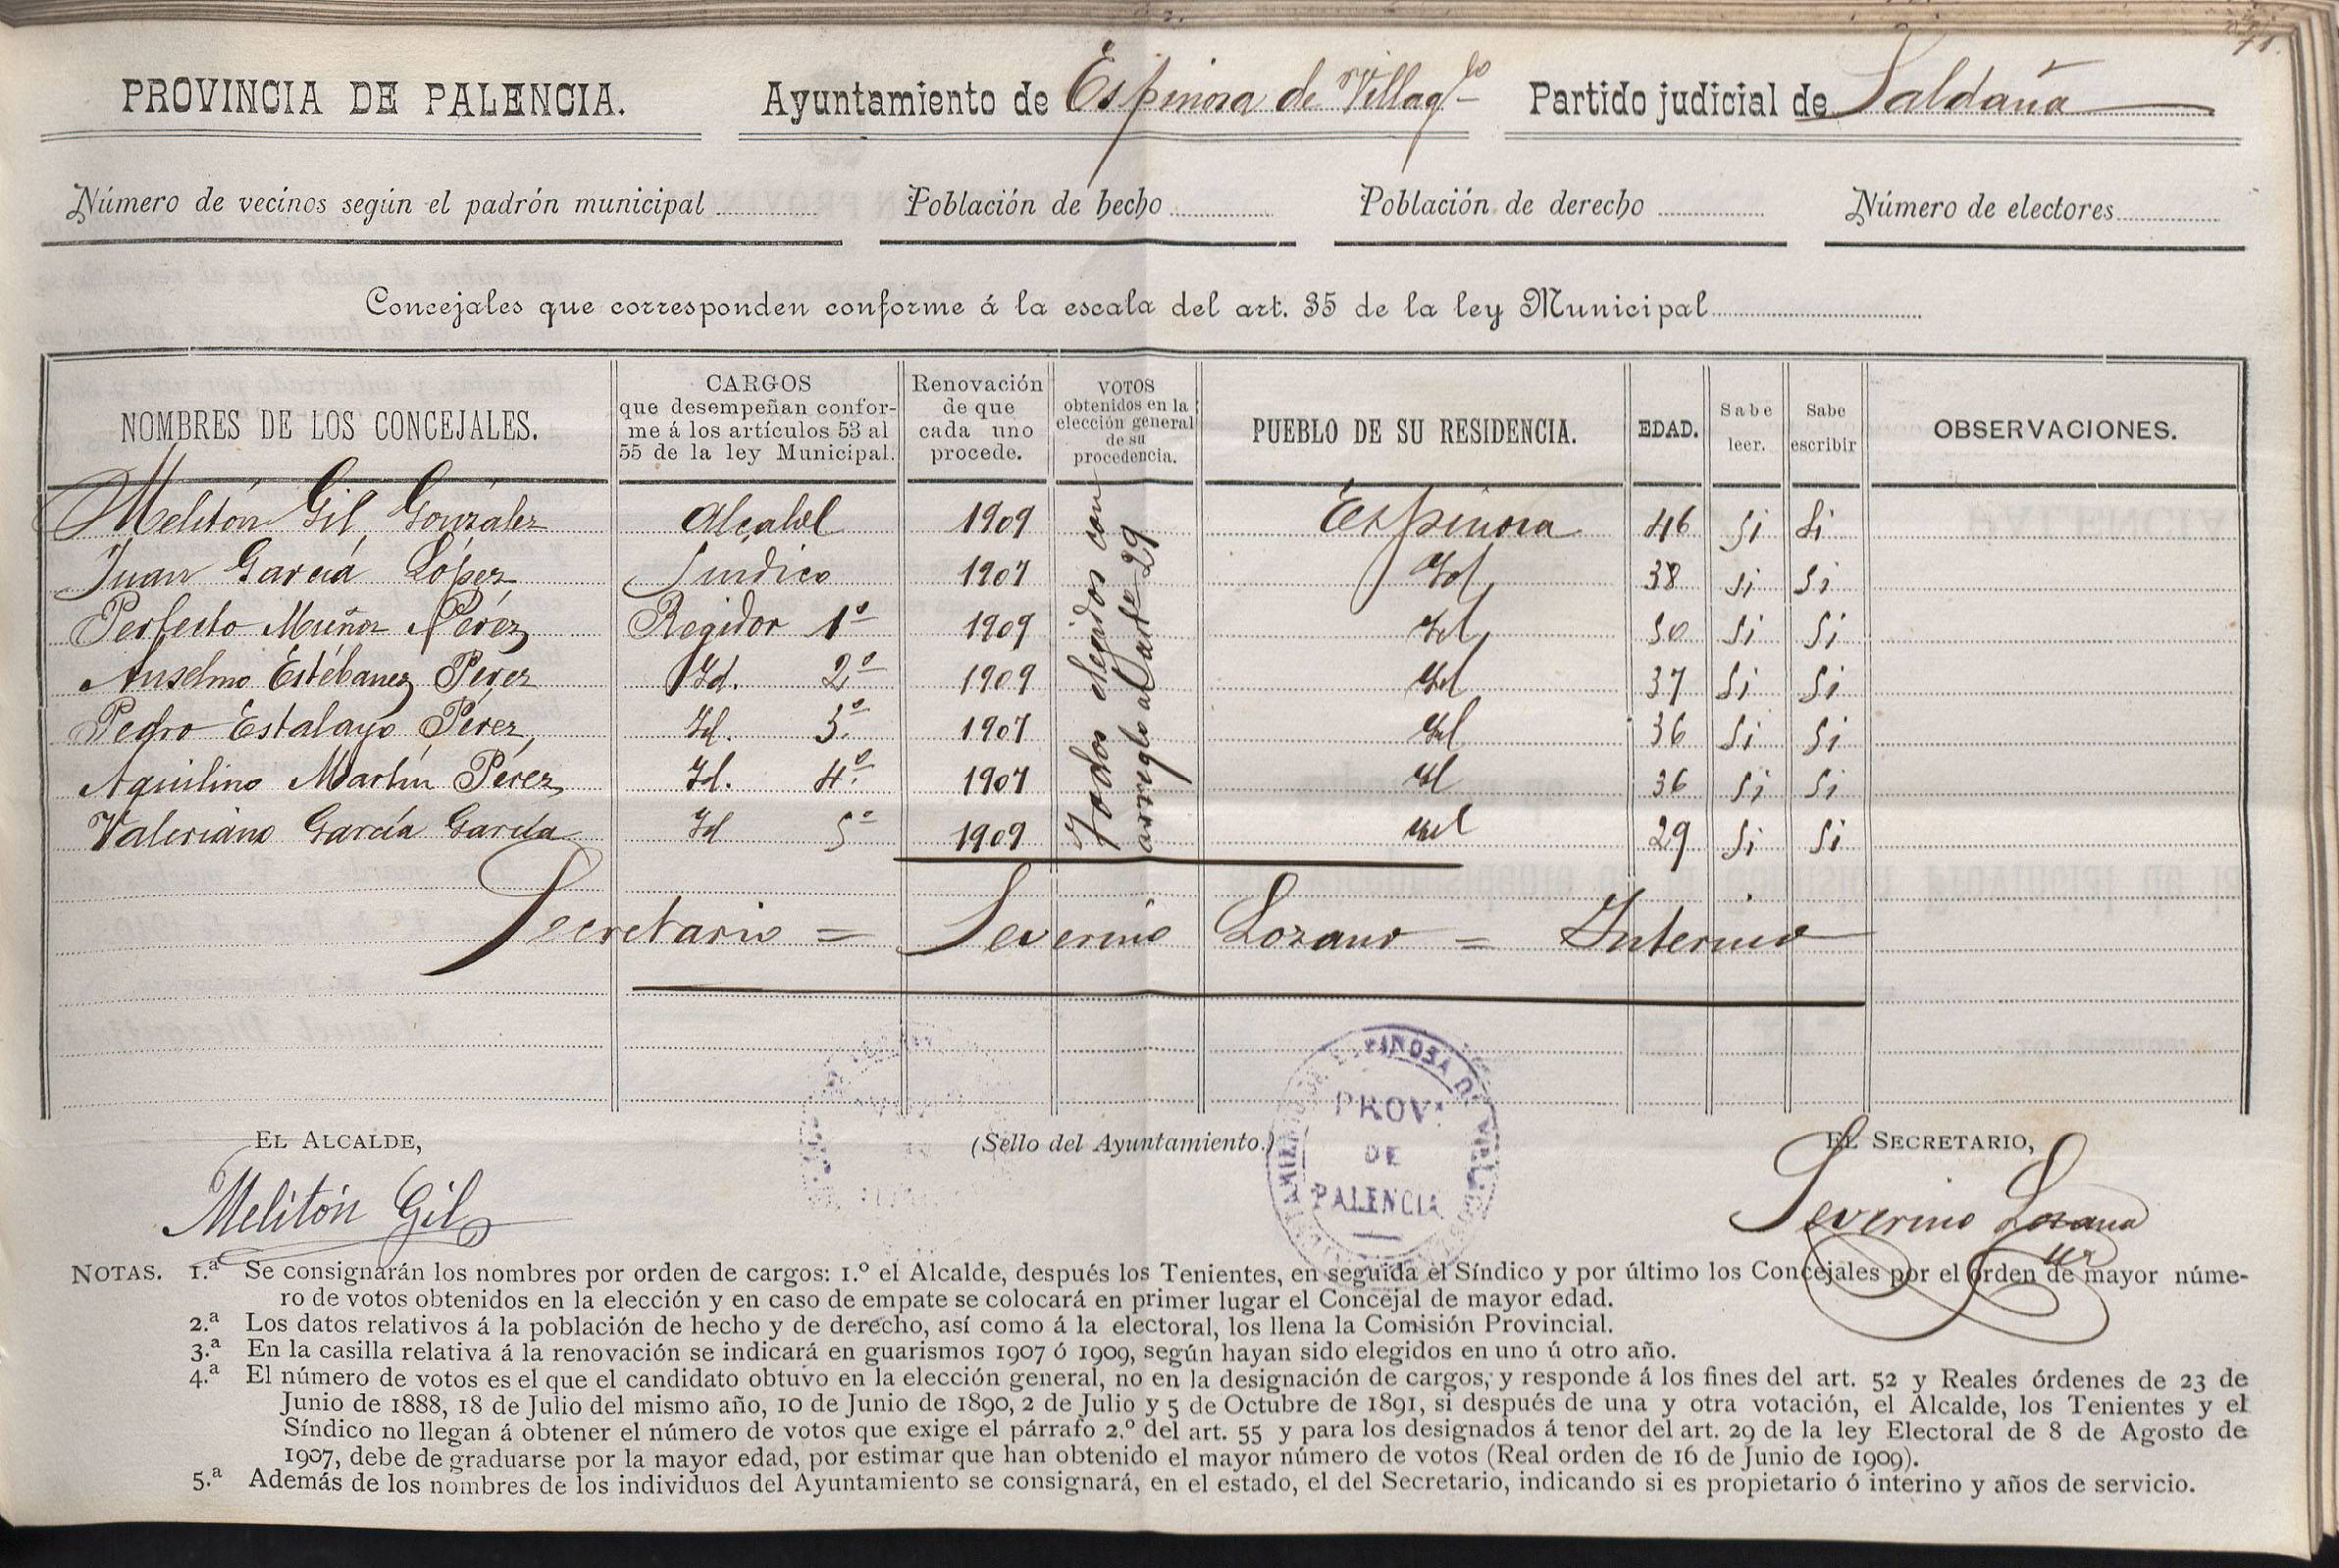 71.
PROVINCIA DE PALENCIA. Ayuntamiento de Espinosa de Villaglo Partido judicial de Saldaña
Número de vecinos según el padrón municipal Población de hecho Población de derecho Número de electores
Concejales que corresponden conforme á la escala del art. 35 de la ley Municipal
NOMBRES DE LOS CONCEJALES.
CARGOS
que desempeñan confor-
me á los artículos 53 al
55 de la ley Municipal.
Renovación
de que
cada uno
procede.
VOTOS
obtenidos en la
elección general
de su
procedencia.
PUEBLO DE SU RESIDENCIA.
EDAD.
Sabe
leer.
Sabe
escribir
OBSERVACIONES.
Melitón Gil González Alcalde 1909 Espinosa 46 Si Si
Juan García López Síndico 1907 Id 38 Si Si
Perfecto Muñoz Pérez Regidor 1º 1909 Id 50 Si Si
Anselmo Estébanez Perez Id. 2º 1909 Id 37 Si Si
Pedro Estalayo Pérez Id. 3º 1907 Id 36 Si Si
Aquilino Martín Pérez Id. 4º 1907 Id 36 Si Si
Valeriano García García Id 5º 1909 Id 29 Si Si
Todos elegidos con
arreglo al arte 29
Secretario = Severino Lozano = Interino
EL ALCALDE, (Sello del Ayuntamiento.) EL SECRETARIO,
Melitón Gil
PROVª
DE
PALENCIA
Severino Lozano
NOTAS. 1.ª Se consignarán los nombres por orden de cargos: 1.º el Alcalde, después los Tenientes, en seguida el Síndico y por último los Concejales por el orden de mayor núme-
ro de votos obtenidos en la elección y en caso de empate se colocará en primer lugar el Concejal de mayor edad.
2.ª Los datos relativos á la población de hecho y de derecho, así como á la electoral, los llena la Comisión Provincial.
3.ª En la casilla relativa á la renovación se indicará en guarismos 1907 ó 1909, según hayan sido elegidos en uno ú otro año.
4.ª El número de votos es el que el candidato obtuvo en la elección general, no en la designación de cargos, y responde á los fines del art. 52 y Reales órdenes de 23 de
Junio de 1888, 18 de Julio del mismo año, 10 de Junio de 1890, 2 de Julio y 5 de Octubre de 1891, si después de una y otra votación, el Alcalde, los Tenientes y el
Síndico no llegan á obtener el número de votos que exige el párrafo 2.º del art. 55 y para los designados á tenor del art. 29 de la ley Electoral de 8 de Agosto de
1907, debe de graduarse por la mayor edad, por estimar que han obtenido el mayor número de votos (Real orden de 16 de Junio de 1909).
5.ª Además de los nombres de los individuos del Ayuntamiento se consignará, en el estado, el del Secretario, indicando si es propietario ó interino y años de servicio.